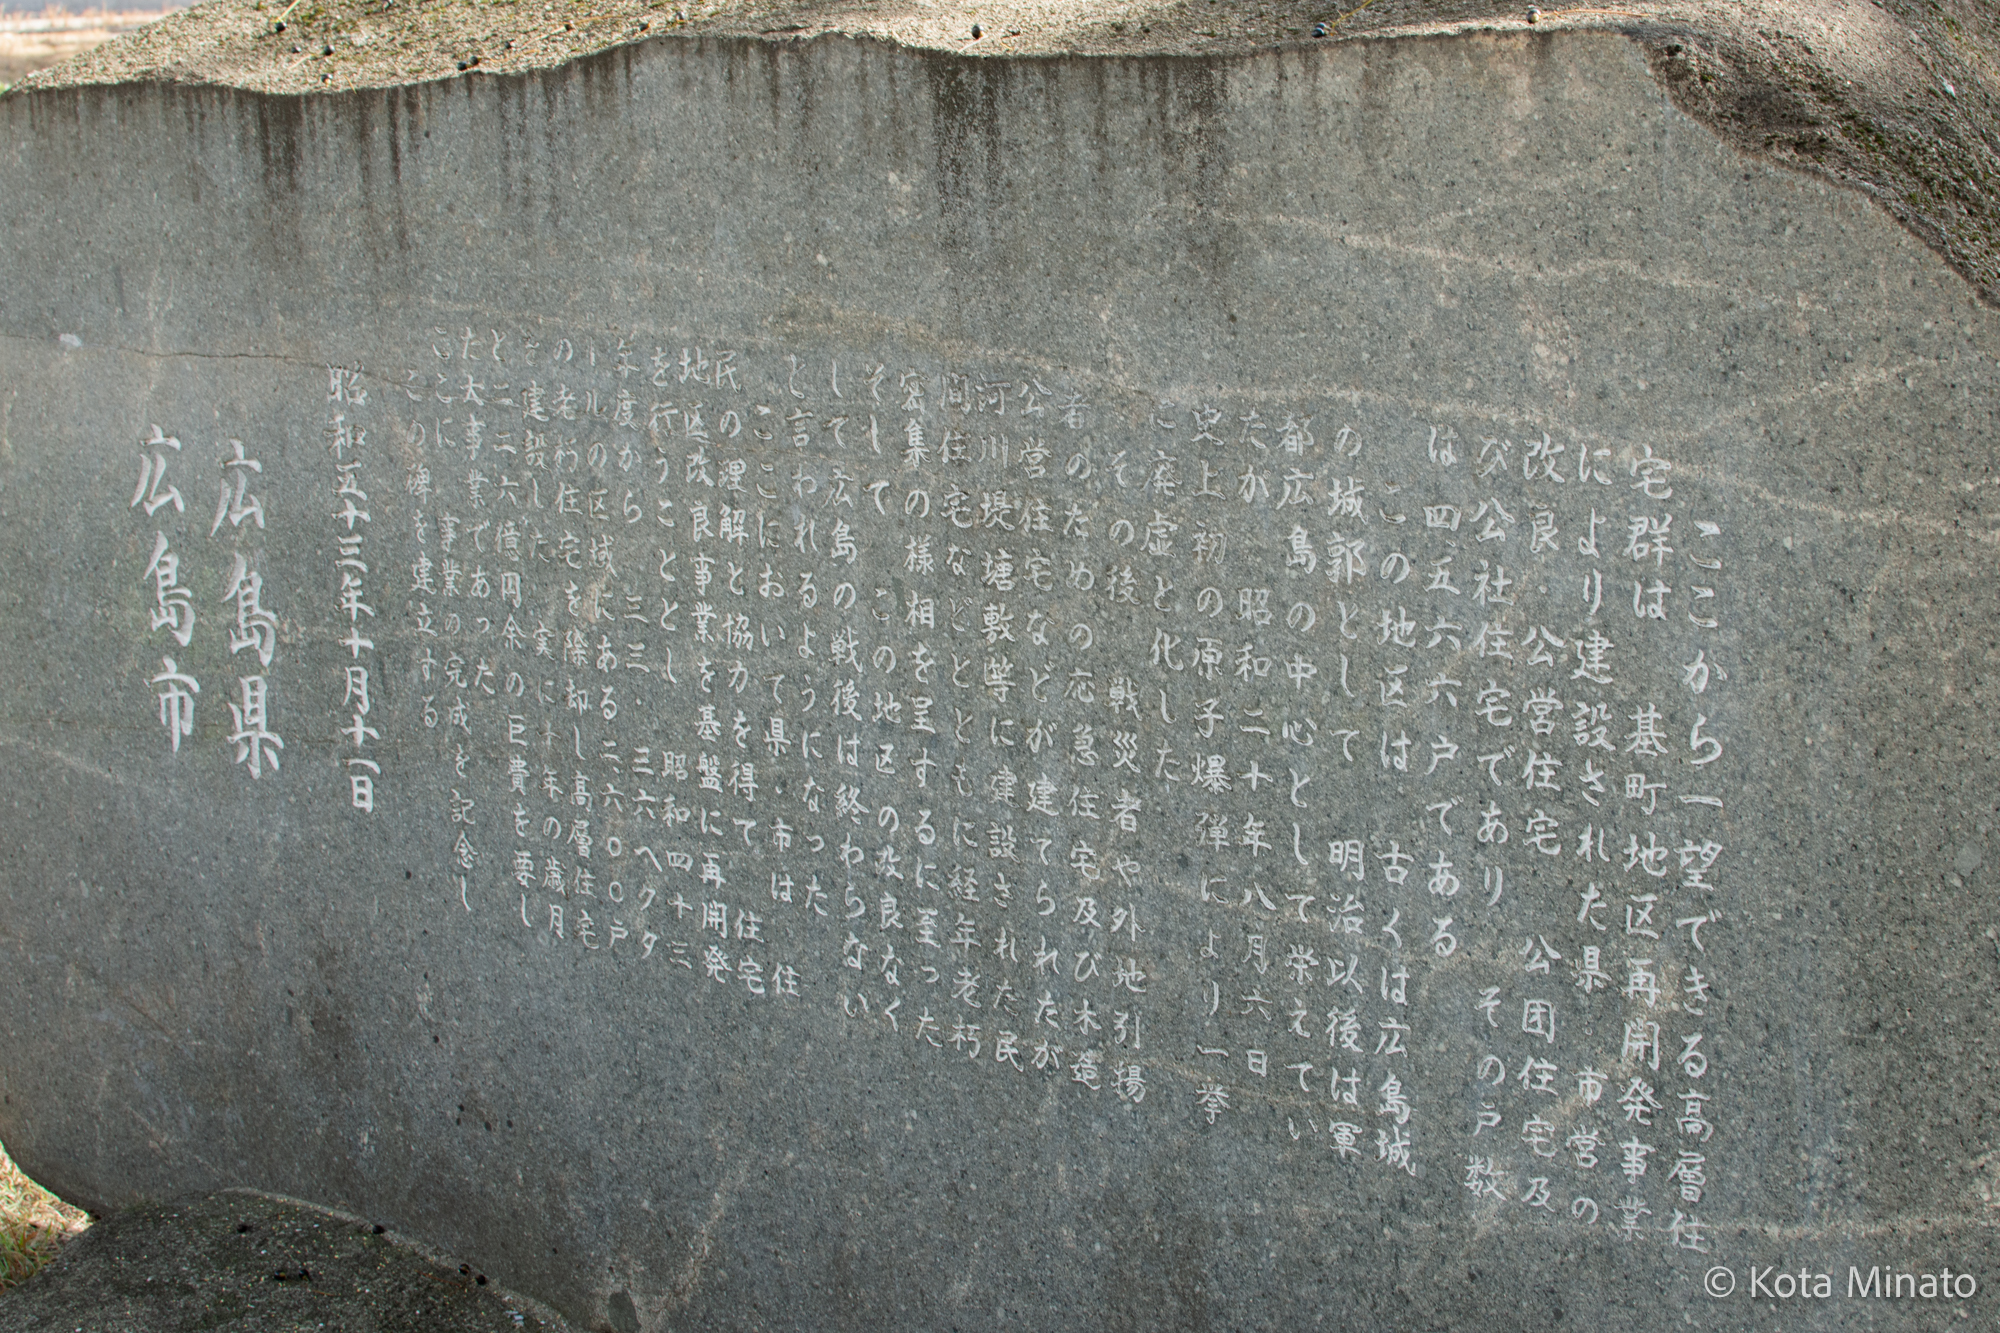 ここから一望できる高層住
宅群は 基町地区再開発事業
により建設された県・市営の
改良・公営住宅 公団住宅及
び公社住宅であり その戸数
は四、五六六戸である
この地区は 古くは広島城
の城郭として 明治以後は軍
都広島の中心として栄えてい
たが 昭和二十年八月六日
史上初の原子爆弾により一挙
に廃虚と化した
その後 戦災者や外地引揚
者のための応急住宅及び木造
公営住宅などが建てられたが
河川堤塘敷等に建設された民
間住宅などとともに経年老朽
密集の様相を呈するに至った
そして この地区の改良なく
して広島の戦後は終わらない
と言われるようになった
ここにおいて県・市は 住
民の理解と協力を得て 住宅
地区改良事業を基盤に再開発
を行うこととし 昭和四十三
年度から 三三・三六ヘクタ
ールの区域にある二、六〇〇戸
の老朽住宅を除却し高層住宅
を建設した 実に十年の歳月
と二二六億円余の巨費を要し
た大事業であった
ここに 事業の完成を記念し
この碑を建立する
昭和五十三年十月十一日
広島県
広島市
© Kota Minato